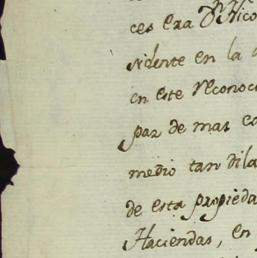 ces era Dn. Nico
sidente en la
en este reconoc
paz de mas
medio tan dila
de esta propieda
Haciendas, en